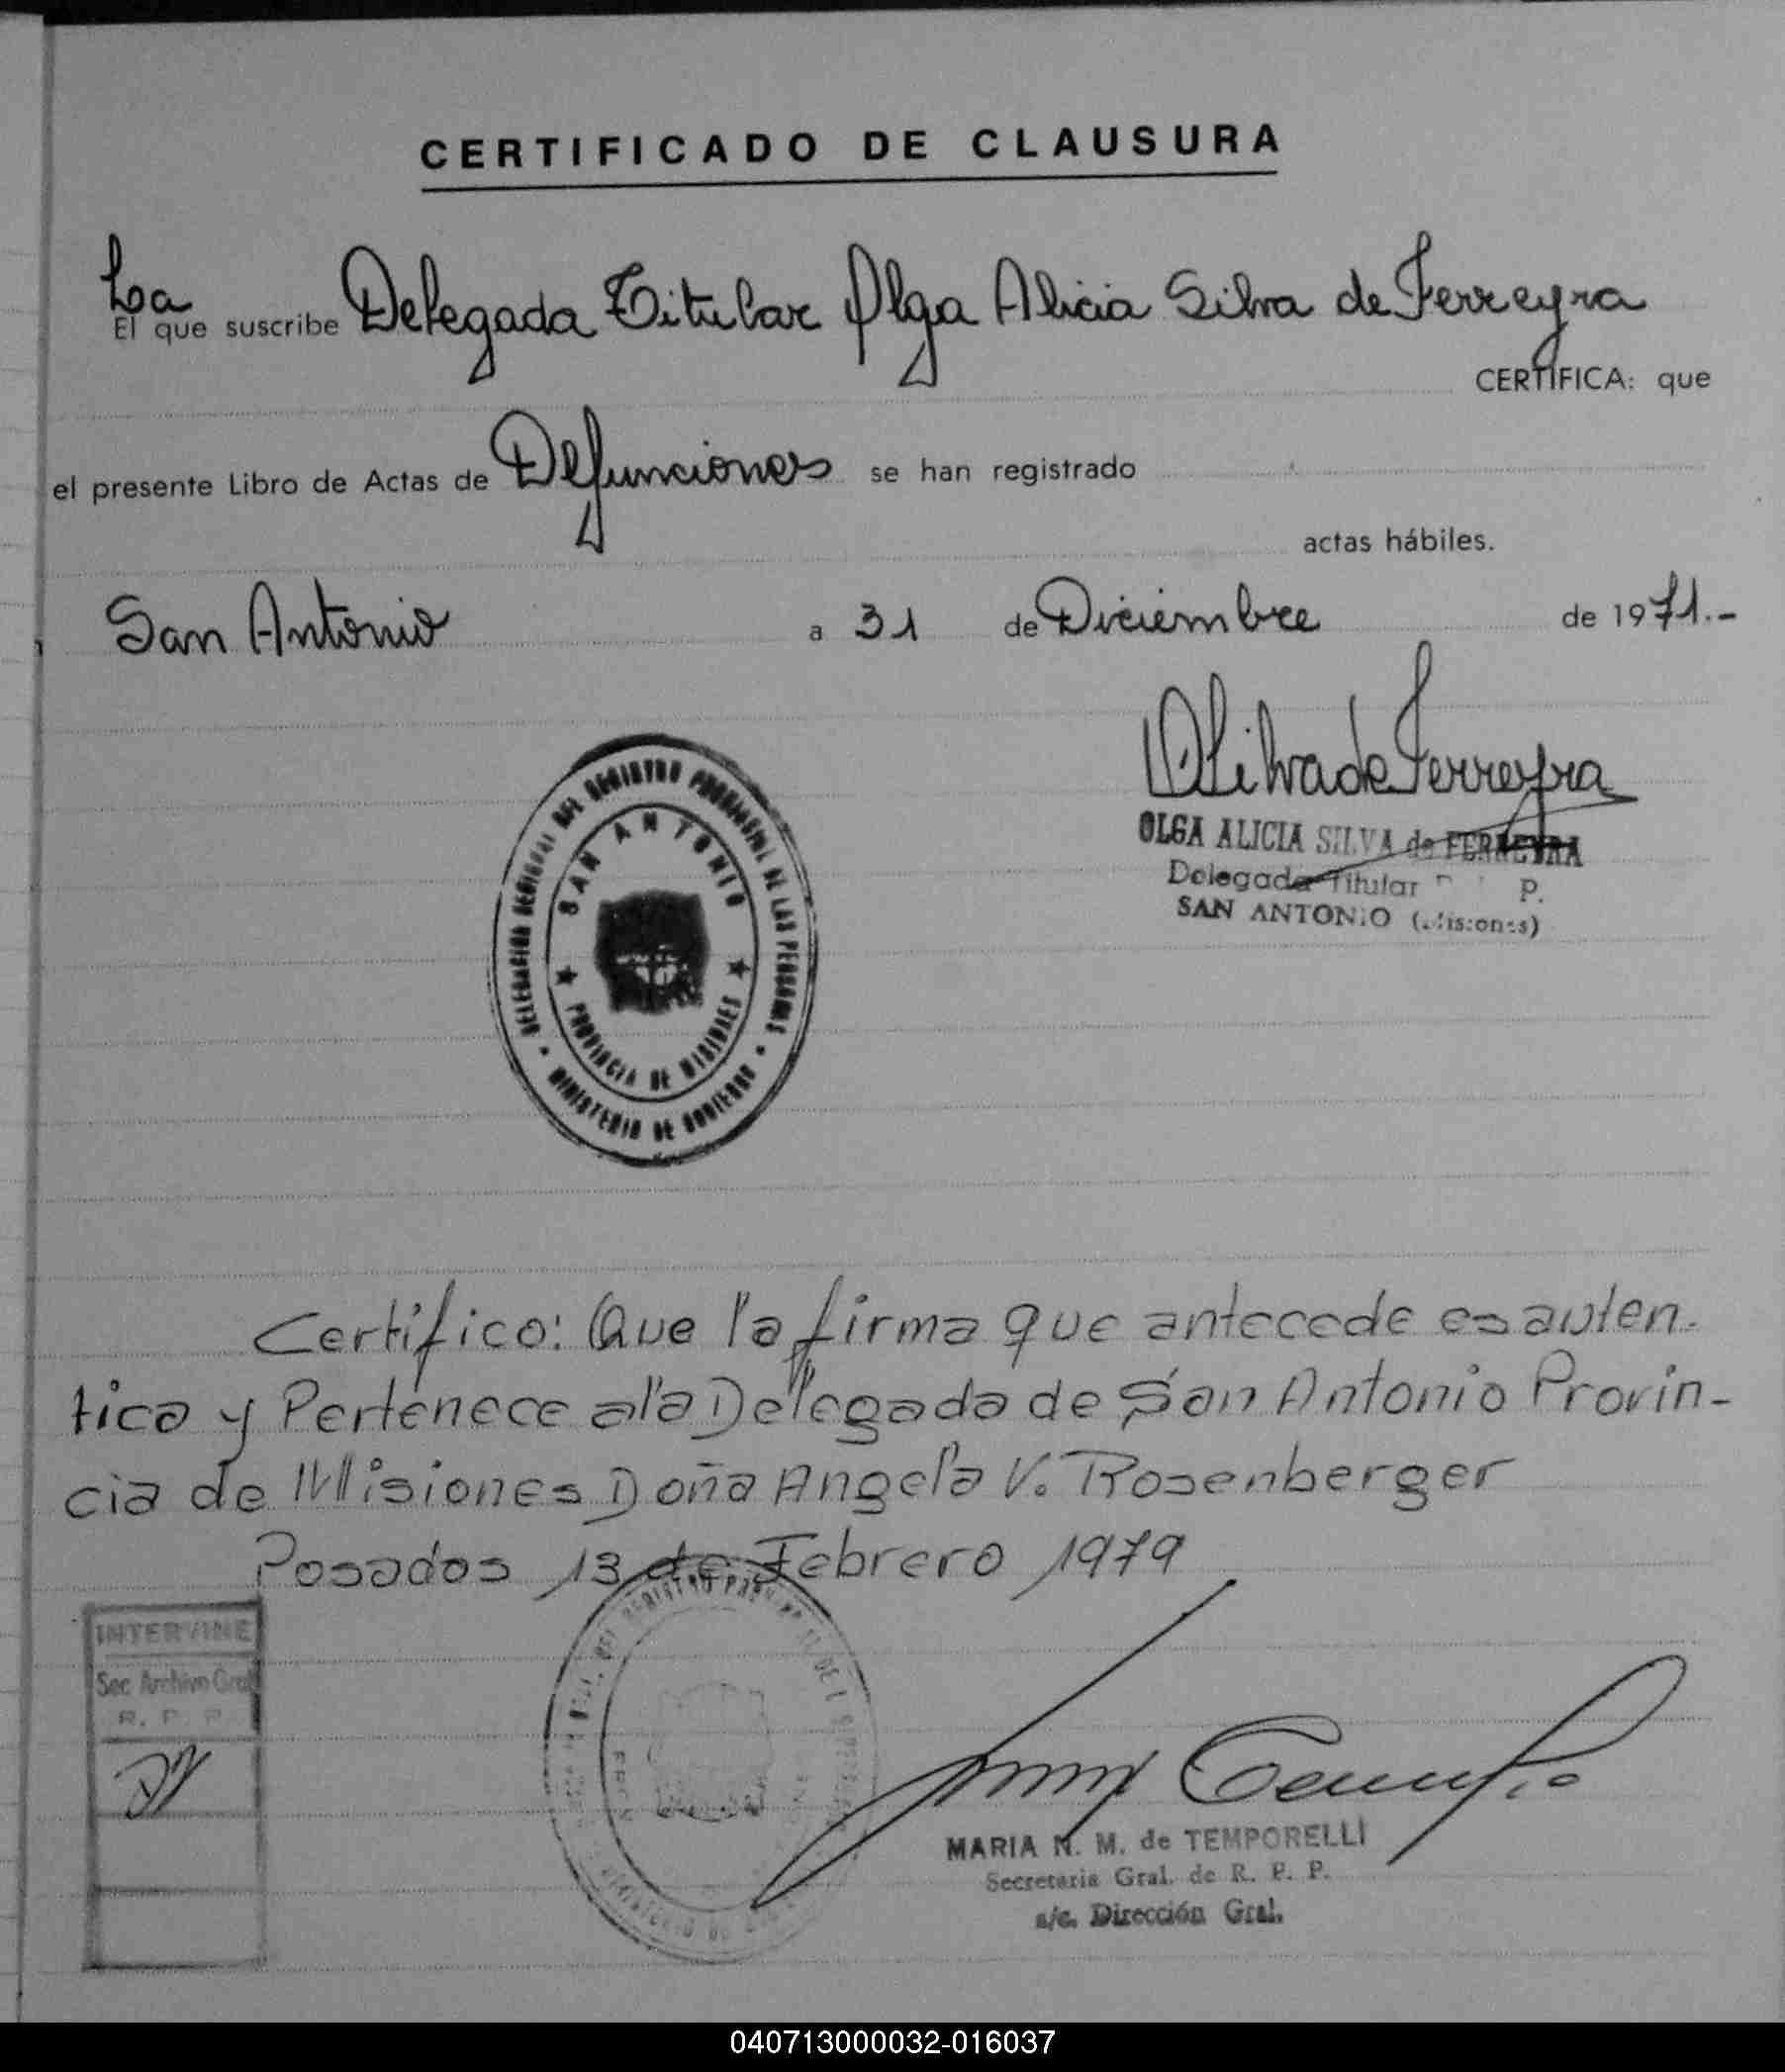 CERTIFICADO DE CLAUSURA
La
El que suscribe Delegada Titular Olga Alicia Silva de Ferreyra
CERTIFICA: que
el presente Libro de Actas de Defunciones se han registrado
actas hábiles.
San Antonio a 31 de Diciembre de 1971.-
OSilva de Ferreyra
OLGA ALICIA SILVA de FERREYRA
Delegada Titular P.
SAN ANTONIO (Misiones)
DELEGACION REGIONAL DEL REGISTRO PROVINCIAL DE LAS PERSONAS
SAN ANTONIO
PROVINCIA DE MISIONES
MINISTERIO DE GOBIERNO
Certifico: Que la firma que antecede es auten-
tica y Pertenece a la Delegada de San Antonio Provin-
cia de Misiones Doña Angela V. Rosenberger
Posadas 13 de Febrero 1979
INTERVINE
Sec. Archivo Gral
R. P. P.
REGISTRO
MARIA N. M. de TEMPORELLI
Secretaria Gral. de R. P. P.
a/c. Dirección Gral.
040713000032-016037